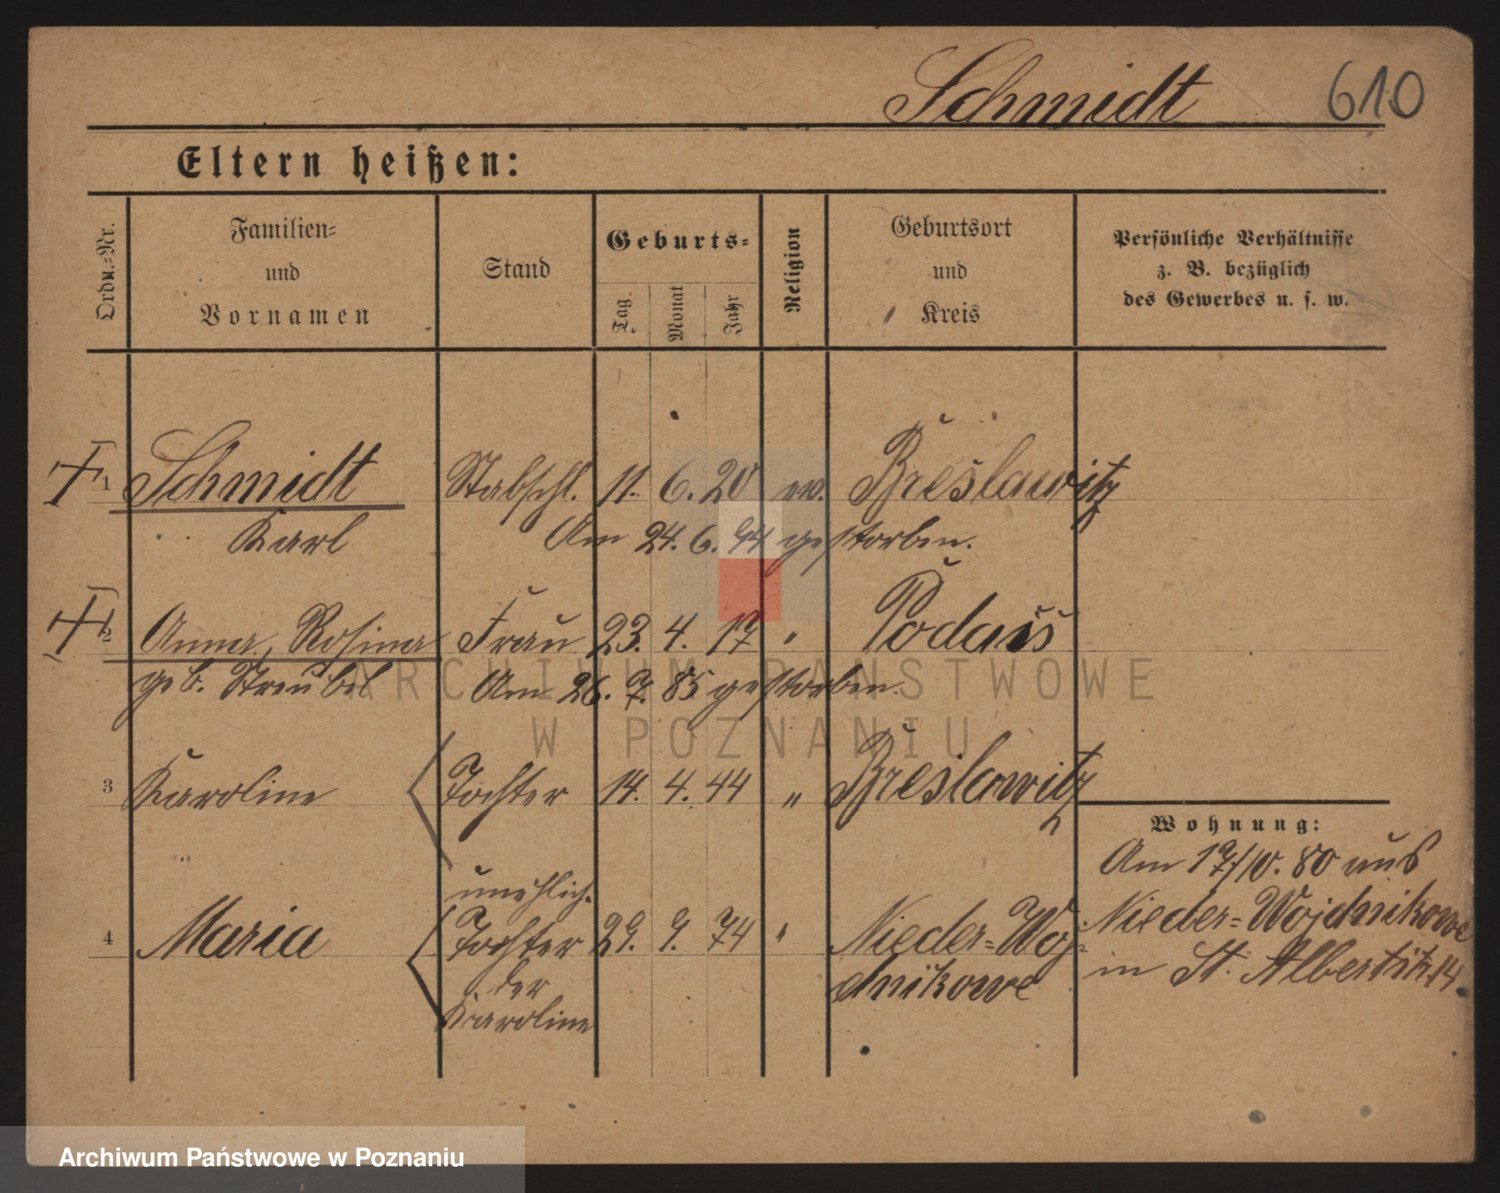 Schmidt 610
Eltern heißen:
Ordn.-Nr. Familien- und Vornamen Stand Geburts- Tag. Monat Jahr Religion Geburtsort und Kreis Persönliche Verhältnisse z. B. bezüglich des Gewerbes u. s. w.
1 Schmidt Stabschl. 11. 6. 20 ev. Breslawitz
Karl Am 24. 6. 94 gestorben.
2 Anna, Rosina Frau 23. 4. 17 " Podais
geb. Streubel Am 26. 7. 85 gestorben.
3 Karoline Tochter 14. 4. 44 " Breslawitz
Wohnung:
Am 17/10. 80 aus
unehlich.
4 Maria Tochter 29. 9. 74 " Nieder-Woj- Nieder-Wojdnikowe
der dnikowe in St. Albertitz 14.
Karoline
ARCHIWUM PAŃSTWOWE
W POZNANIU
Archiwum Państwowe w Poznaniu